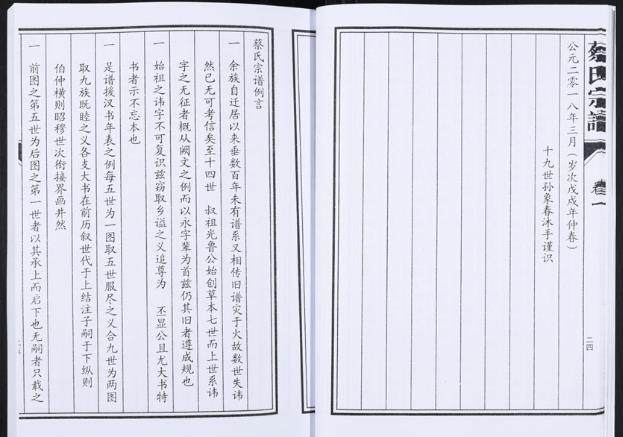 蔡氏宗谱
卷一
公元二零一八年三月（岁次戊戌年仲春）
十九世孙象春沐手谨识
二四
蔡氏宗谱例言
一 余族自迁居以来垂数百年未有谱系又相传旧谱灾于火故数世失讳
然已无可考信矣至十四世 叔祖光鲁公始创草本七世而上世系讳
字之无征者概从阙文之例而以永字辈为首兹仍其旧者遵成规也
一 始祖之讳字不可复识兹窃取乡谥之义追尊为 丕显公且尤大书特
书者示不忘本也
一 是谱援汉书年表之例每五世为一图取五世服尽之义合九世为两图
取九族既睦之义各支大书在前历叙世代于上结注子嗣于下纵则
伯仲横则昭穆世次衔接界画井然
一 前图之第五世为后图之第一世者以其承上而启下也无嗣者只载之